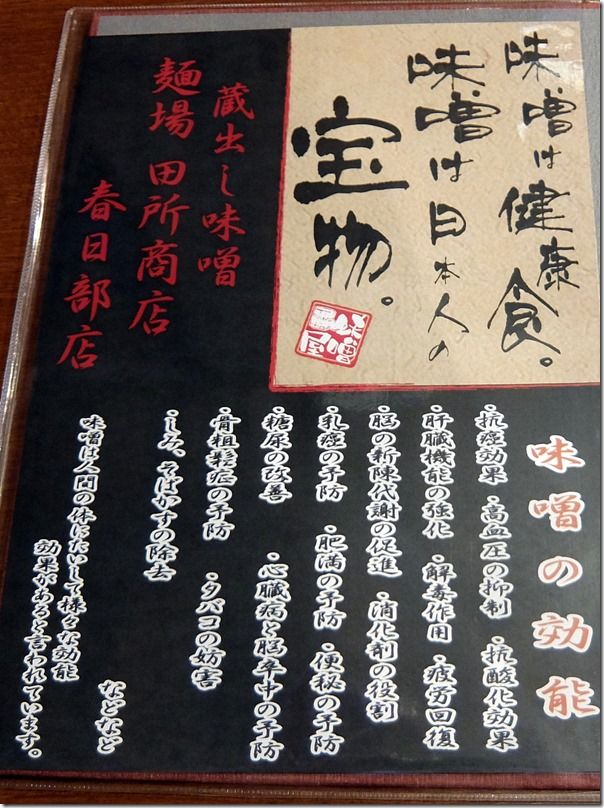 味噌は健康食。
味噌は日本人の
宝物。
味噌屋
蔵出し味噌
麺場 田所商店
春日部店
味噌の効能
・抗癌効果 ・高血圧の抑制 ・抗酸化効果
・肝臓機能の強化 ・解毒作用 ・疲労回復
・脳の新陳代謝の促進 ・消化剤の役割
・乳癌の予防 ・肥満の予防 ・便秘の予防
・糖尿の改善 ・心臓病と脳卒中の予防
・骨粗鬆症の予防 ・タバコの妨害
・しみ、そばかすの除去
などなど
味噌は人間の体にたいして様々な効能
効果があると言われています。